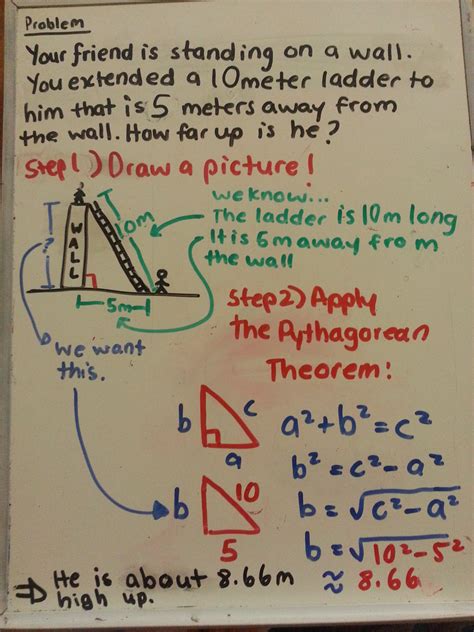 Problem
Your friend is standing on a wall.
You extended a 10meter ladder to
him that is 5 meters away from
the wall. How far up is he?
Step 1) Draw a picture!
we know...
The ladder is 10m long
It is 5m away from
the wall
10m
WALL
?
5m
we want
this.
Step 2) Apply
the Pythagorean
Theorem:
b c a
a²+b²=c²
b²=c²-a²
b 10 5
b=√c²-a²
b=√10²-5²
≈ 8.66
⇒ He is about 8.66m
high up.